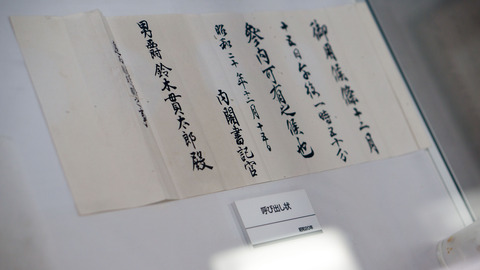 御用候條十二月
十五日午後一時五十分
參内可有之候也
昭和二十年十二月十五日
内閣書記官
男爵鈴木貫太郎殿
呼び出し状